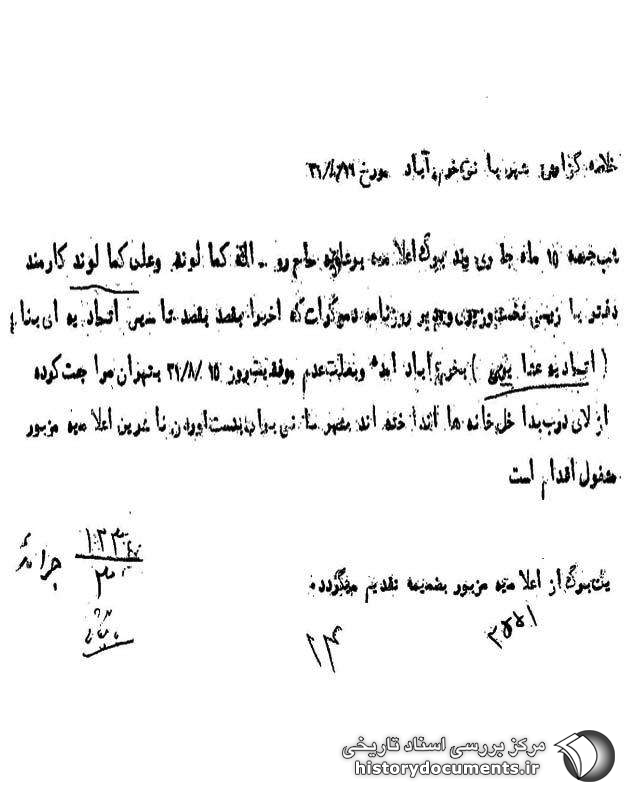 خلاصه گزارش شهربانی خرم آباد مورخ ۳۱/۸/۱۶
شب جمعه ۱۵ ماه جاری چند برگ اعلامیه برعلیه حاج روح الله کمالوند وعلی کمالوند کارمند
دفتر بازرسی نخست وزیری ومدیر روزنامه دموکرات که اخیرا بقصد تاسیس اتحادیه ای بنام
( اتحادیه عشایری ) بخرم آباد آمده وبعلت عدم موفقیت روز ۳۱/۸/۱۵ بتهران مراجعت کرده
از لای درب بداخل خانه ها انداخته اند شهربانی برای بدست آوردن ناشرین اعلامیه مزبور
مشغول اقدام است
یک برگ از اعلامیه مزبور بضمیمه تقدیم میگردد.
جرائد
۱۴
مرکز بررسی اسناد تاریخی
historydocuments.ir